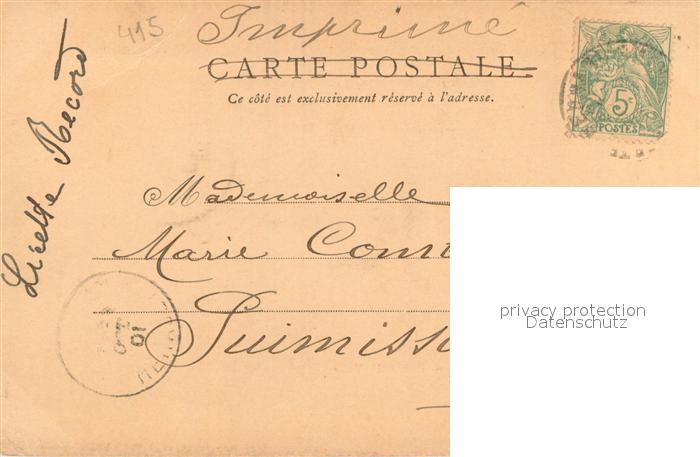 415
Imprimé
CARTE POSTALE.
Ce côté est exclusivement réservé à l'adresse.
5c
POSTES
Lisette Record
Mademoiselle
Marie
Puimisso
01
privacy protection
Datenschutz